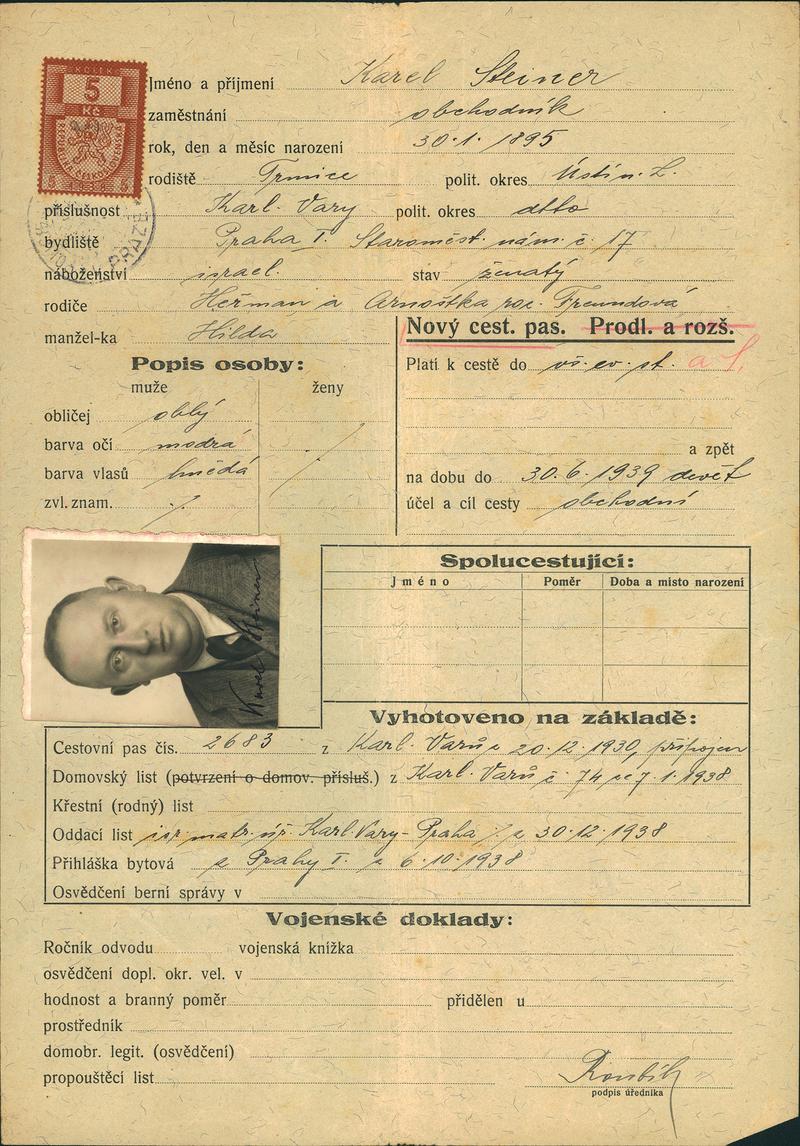 KOLEK
5
Kč
REPUBLIKA ČESKOSLOVENSKÁ
PRAZE
Jméno a příjmení Karel Steiner
zaměstnání obchodník
rok, den a měsíc narození 30.1.1895
rodiště Trmice polit. okres Ústí n. L.
příslušnost Karl. Vary polit. okres dtto
bydliště Praha I. Staroměst. nám. č. 17
náboženství israel. stav ženatý
rodiče Heřman a Arnoštka roz. Freundová
manžel-ka Hilda
Nový cest. pas. Prodl. a rozš.
Popis osoby:
muže ženy
obličej oblý
barva očí modrá
barva vlasů hnědá
zvl. znam. ./.
Platí k cestě do vš. ev. st. a
a zpět
na dobu do 30.6.1939 devět
účel a cíl cesty obchodní
Karel Steiner
Spolucestující:
Jméno Poměr Doba a místo narození
Vyhotoveno na základě:
Cestovní pas čís. 2683 z Karl. Varů z 20.12.1930, připojen
Domovský list (potvrzení o domov. přísluš.) z Karl. Varů č. 74 ze 7.1.1938
Křestní (rodný) list
Oddací list isr. matr. úř. Karl. Vary - Praha z 30.12.1938
Přihláška bytová z Prahy I. z 6.10.1938
Osvědčení berní správy v
Vojenské doklady:
Ročník odvodu vojenská knížka
osvědčení dopl. okr. vel. v
hodnost a branný poměr přidělen u
prostředník
domobr. legit. (osvědčení)
propouštěcí list
podpis úředníka